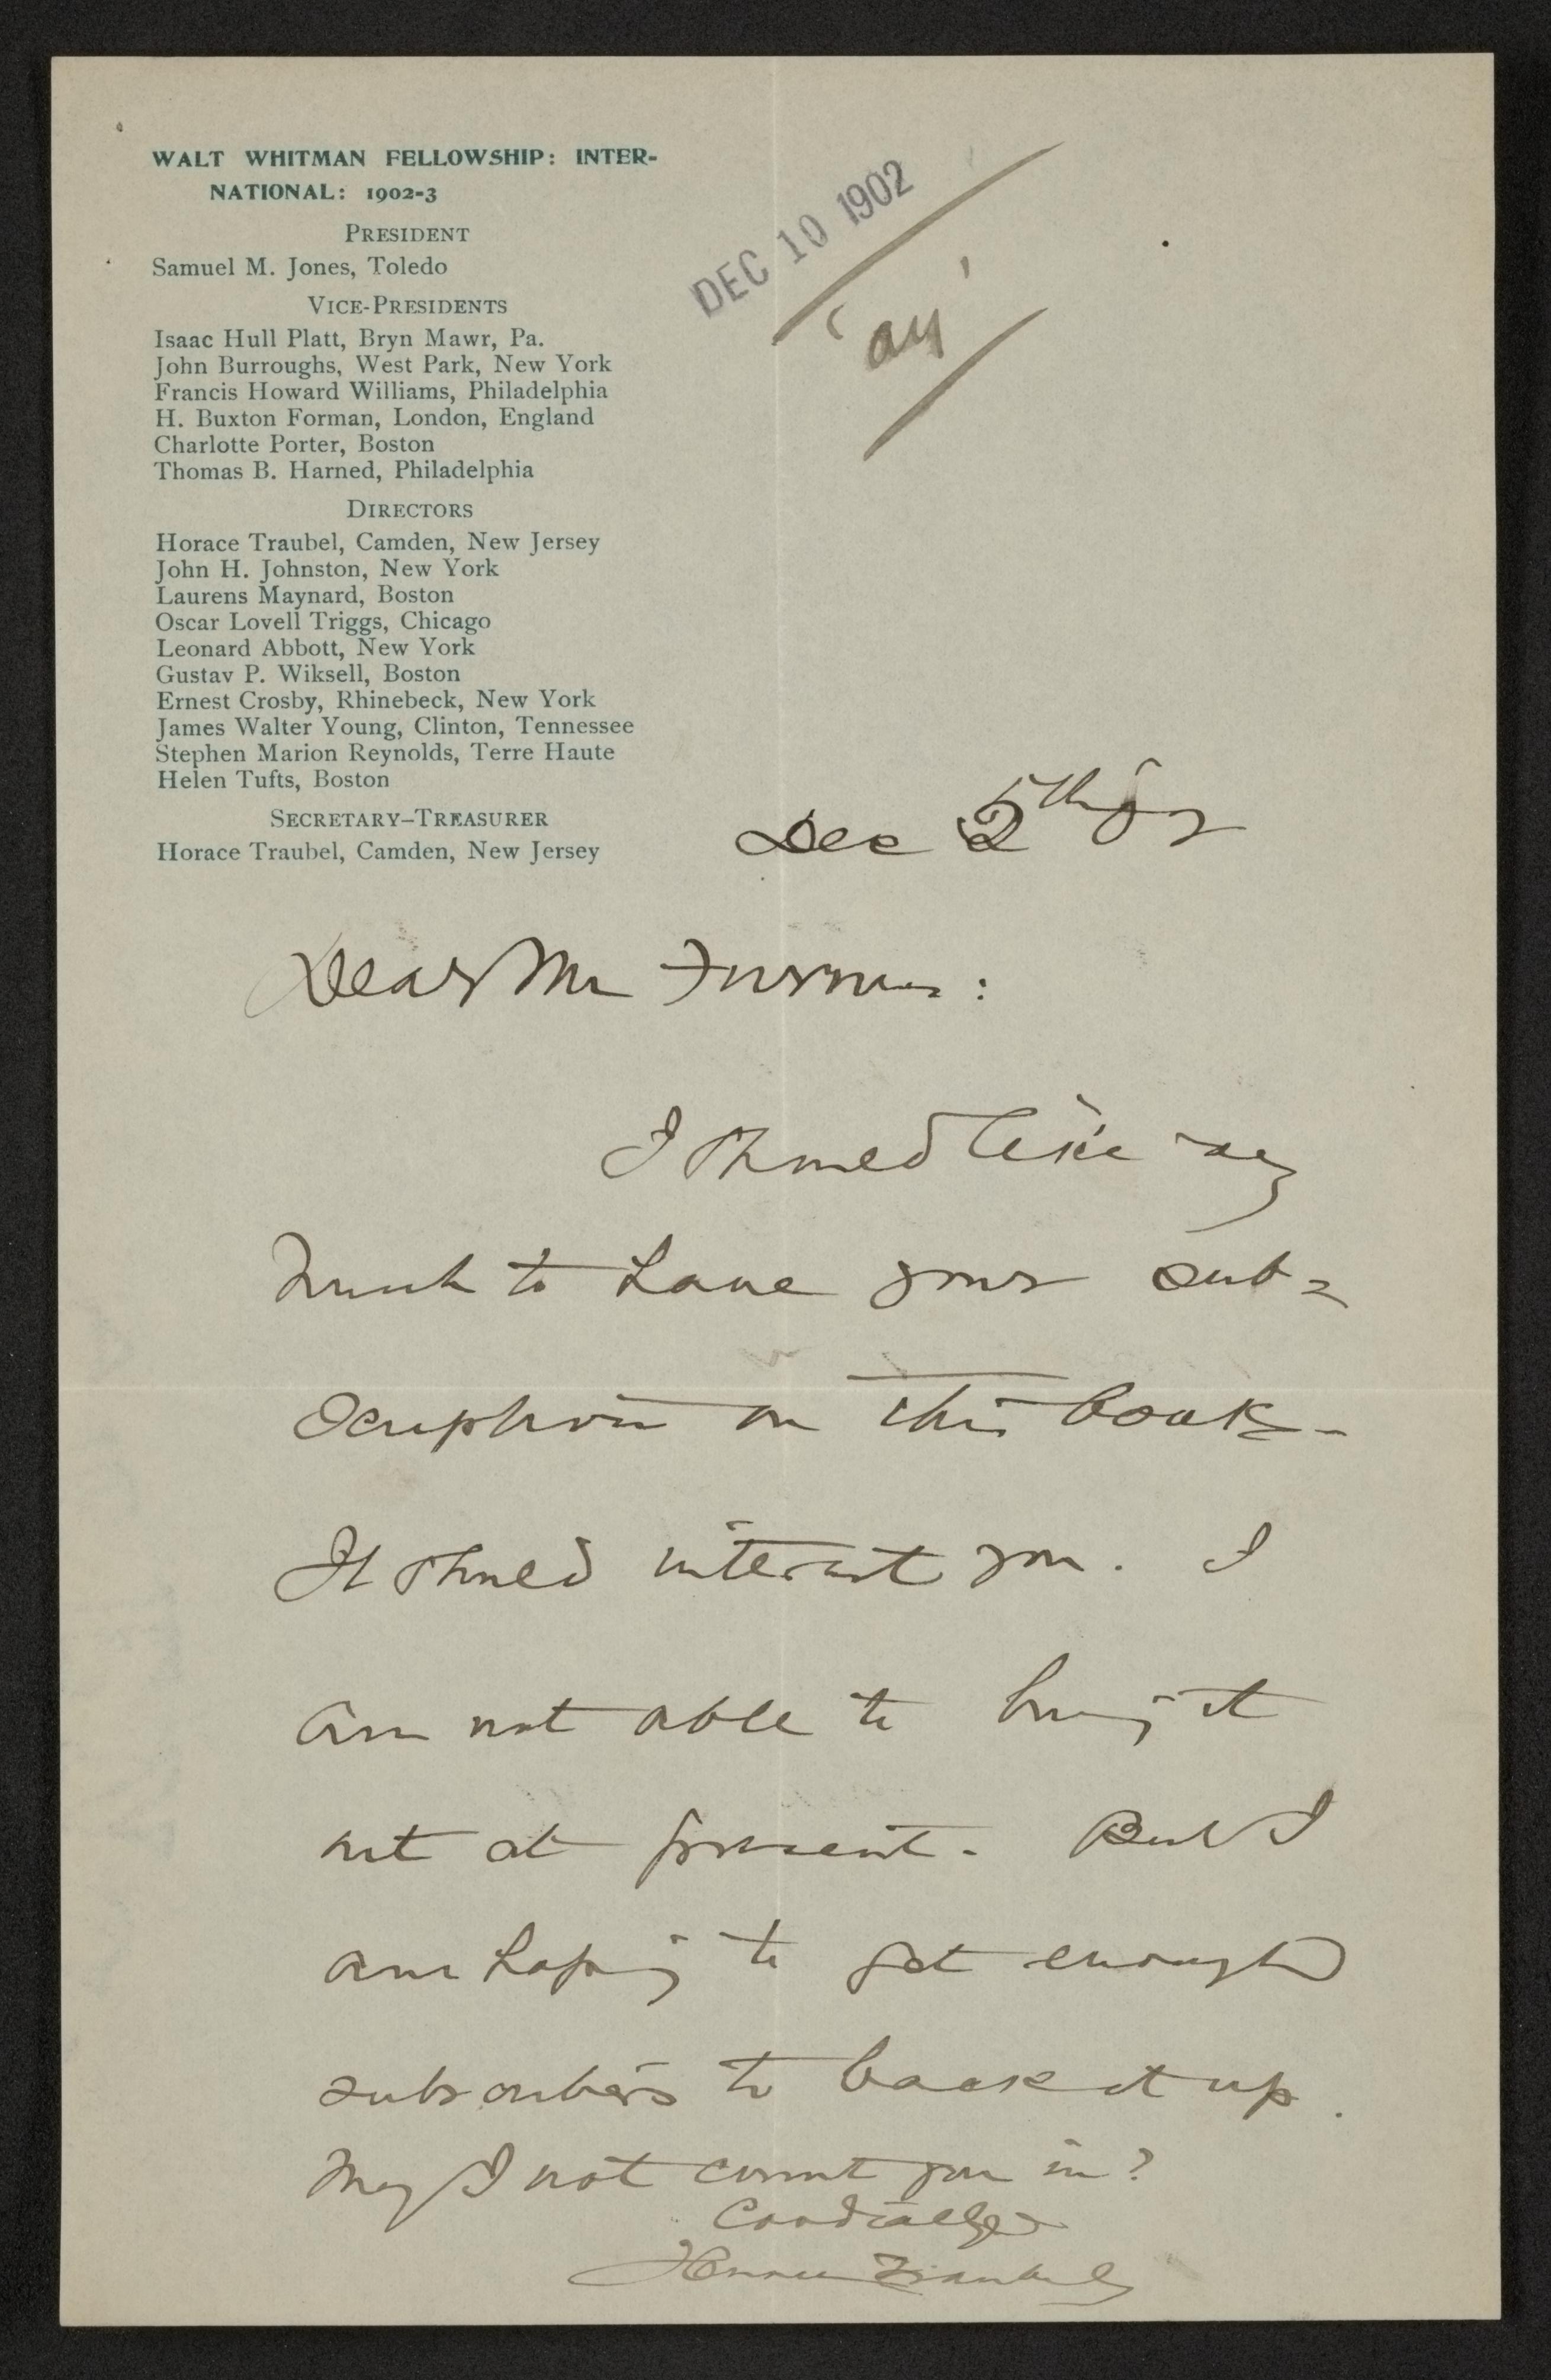 WALT WHITMAN FELLOWSHIP: INTER-
NATIONAL: 1902-3
PRESIDENT
Samuel M. Jones, Toledo
VICE-PRESIDENTS
Isaac Hull Platt, Bryn Mawr, Pa.
John Burroughs, West Park, New York
Francis Howard Williams, Philadelphia
H. Buxton Forman, London, England
Charlotte Porter, Boston
Thomas B. Harned, Philadelphia
DIRECTORS
Horace Traubel, Camden, New Jersey
John H. Johnston, New York
Laurens Maynard, Boston
Oscar Lovell Triggs, Chicago
Leonard Abbott, New York
Gustav P. Wiksell, Boston
Ernest Crosby, Rhinebeck, New York
James Walter Young, Clinton, Tennessee
Stephen Marion Reynolds, Terre Haute
Helen Tufts, Boston
SECRETARY-TREASURER
Horace Traubel, Camden, New Jersey
DEC 10 1902
Dec
Dear Mr
I should like very
much to have your sub=
scription on this book-
It should interest you. I
am not able to bring it
out at present. But I
am hoping to get enough
subscribers to back it up.
May I not count you in?
Cordially
Horace Traubel